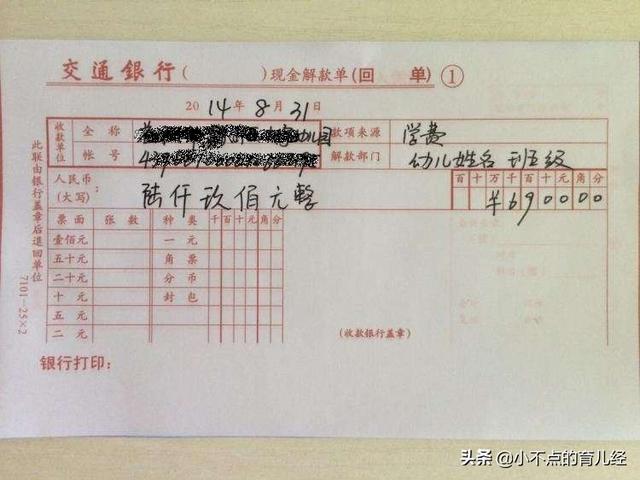 交通銀行(　　　)现金解款单(回　单)①
2014年8月31日
收款单位 全称 幼儿园 款项来源 学费
帐号 解款部门 幼儿姓名 班级
人民币(大写) 陆仟玖佰元整 百十万千百十元角分
¥690000
票面 张数 种类 千百十元角分
壹佰元 一元
五十元 角票
二十元 分币
十元 封包
五元
二元
(收款银行盖章)
银行打印：
此联由银行盖章后退回单位
7101-25×2
头条 @小不点的育儿经